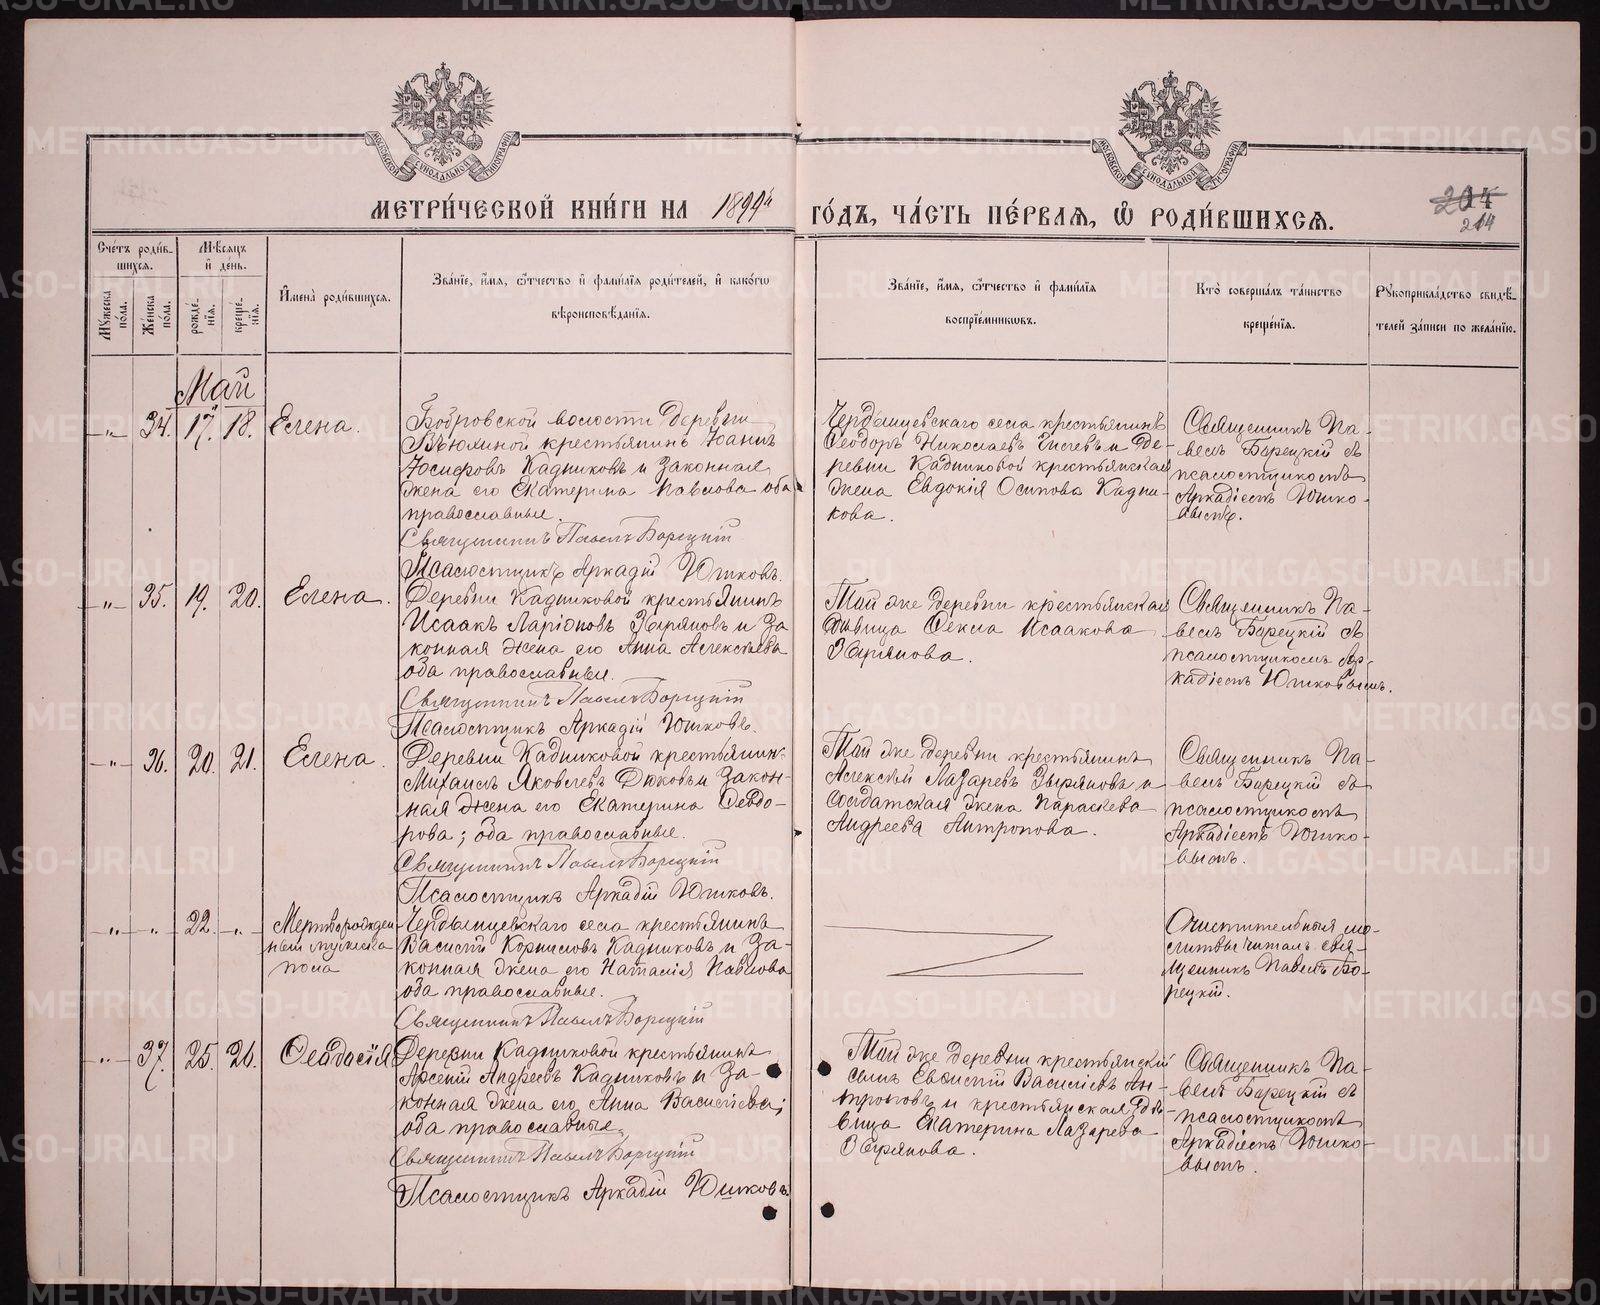 МОСКОВСКОЙ СѴНОДАЛЬНОЙ ТИПОГРАФІИ
МОСКОВСКОЙ СѴНОДАЛЬНОЙ ТИПОГРАФІИ
МЕТРИ́ЧЕСКОЙ КНИ́ГИ НА
ГО́ДЪ, ЧА́СТЬ ПЕ́РВАѦ, Ѡ҆ РОДИ́ВШИХСѦ.
204
214
Сче́тъ роди́в-
шихсѧ.
Мѣ́сѧцъ
и҆ де́нь.
Мꙋ́жеска
по́ла.
Же́нска
по́ла.
рожде́-
нїѧ.
креще́-
нїѧ.
И҆мена̀ роди́вшихсѧ.
Зва́нїе, и҆́мѧ, ѻ҆́тчество и҆ фами́лїѧ роди́телей, и҆ како́гѡ
вѣроисповѣ́данїѧ.
Зва́нїе, и҆́мѧ, ѻ҆́тчество и҆ фами́лїѧ
воспрїе́мникѡвъ.
Кто̀ соверша́лъ та́инство
креще́нїѧ.
Рꙋкоприкла́дство свидѣ́-
телей за́писи по жела́нїю.
Май
„ 34. 17. 18. Елена.
Бобровской волости деревни
крестьянинъ Іоаннъ
Іосифовъ Кадниковъ и законная
жена его Екатерина Павлова оба
православные.
Священникъ Павелъ Борецкій
Псаломщикъ Аркадій Юшковъ.
Чердынцевскаго села крестьянинъ
Ѳеодоръ Николаевъ и де-
ревни Кадниковой крестьянская
жена Евдокія Осипова Кадни-
кова.
Священникъ Па-
велъ Борецкій съ
псаломщикомъ
Аркадіемъ Юшко-
вымъ.
„ 35. 19. 20. Елена.
Деревни Кадниковой крестьянинъ
Исаакъ Ларіоновъ Зыряновъ и за
конная жена его Анна Алексѣева
оба православные.
Священникъ Павелъ Борецкій
Псаломщикъ Аркадій Юшковъ.
Той же деревни крестьянская
дѣвица Ѳекла Исаакова
Зырянова.
Священникъ Па-
велъ Борецкій съ
псаломщикомъ Ар-
кадіемъ Юшковымъ.
„ 36. 20. 21. Елена.
Деревни Кадниковой крестьянин-
Михаилъ Яковлевъ и закон-
ная жена его Екатерина Ѳеодо-
рова; оба православные.
Священникъ Павелъ Борецкій
Псаломщикъ Аркадій Юшковъ.
Той же деревни крестьянинъ
Алексѣй Лазаревъ Зыряновъ и
солдатская жена Параскева
Андреева Антропова.
Священникъ Па-
велъ Борецкій съ
псаломщикомъ
Аркадіемъ Юшко-
вымъ.
„ „ 22. „ Мертворожден
ный мужеска
пола
Чердынцевскаго села крестьянинъ
Василій Корниловъ Кадниковъ и за-
конная жена его Наталія Павлова
оба православные.
Священникъ Павелъ Борецкій
Очистительныя мо-
литвы читалъ свя-
щенникъ Павелъ Бо-
рецкій.
„ 37. 25. 26. Ѳеодосія
Деревни Кадниковой крестьянинъ
Арсеній Андреевъ Кадниковъ и за-
конная жена его Анна Василіева;
оба православные.
Священникъ Павелъ Борецкій
Псаломщикъ Аркадій Юшковъ.
Той же деревни крестьянскій
сынъ Василіевъ Ан-
троповъ и крестьянская дѣ-
вица Екатерина Лазарева
Зырянова.
Священникъ Па-
велъ Борецкій съ
псаломщикомъ
Аркадіемъ Юшко-
вымъ.
METRIKI.GASO-URAL.RU